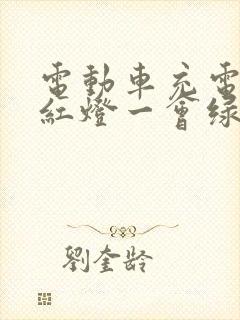 電動車充電
紅燈一會綠
劉奎齡